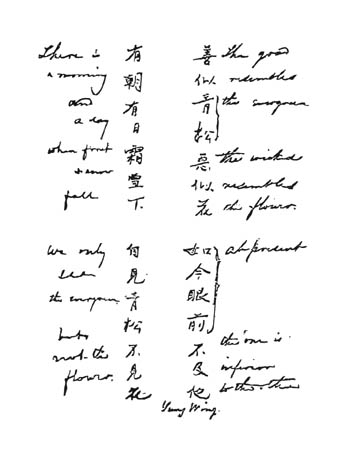 善似青松惡似花
The good
resembles
the evergreen
the wicked
resembles
the flowers.
如今眼前不及他
at present
this one is
inferior
to the other
有朝有日霜雪下
There is
a morning
and
a day
when frost
& snow
fall
但見青松不見花
We only
see
the evergreen
but
not the
flowers.
Yung Wing.